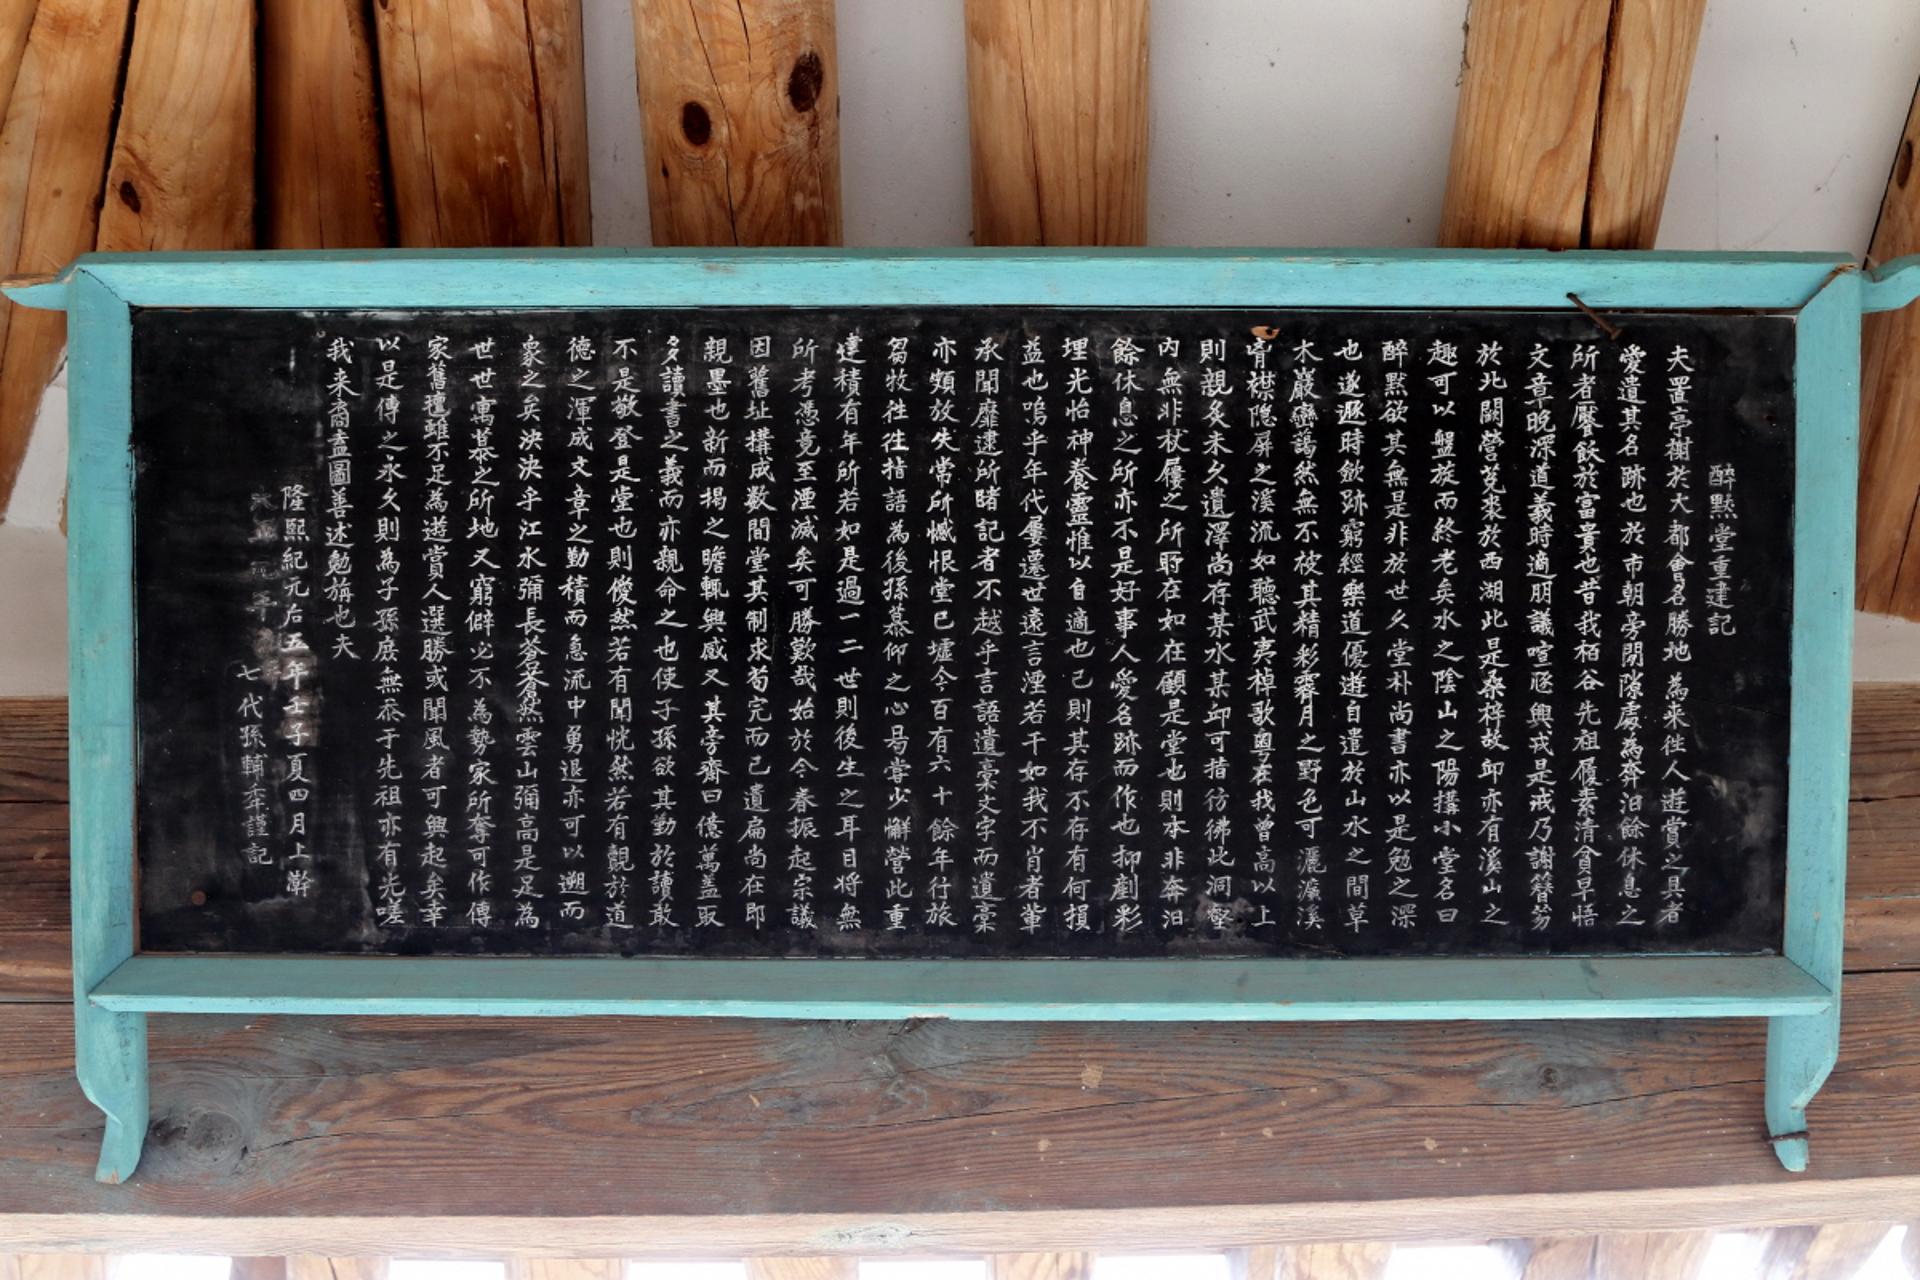 醉默堂重建記
夫置亭榭於大都會名勝地為來往人遊賞之具者
愛遺其名跡也於市朝旁閒隙處為奔汨餘休息之
所者饜飫於富貴也昔我栢谷先祖履素清貧早悟
文章晚深道義時適朋議喧豗興戎是戒乃謝簪笏
於北闕營菟裘於西湖此是桑梓故邱亦有溪山之
趣可以盤旋而終老矣水之陰山之陽搆小堂名曰
醉默欲其無是非於世久堂朴尚書亦以是勉之深
也遂遯時斂跡窮經樂道優遊自遣於山水之間草
木巖巒藹然無不被其精彩霽月之野色可灑濂溪
胷襟隐屏之溪流如聽武夷棹歌粤在我曾高以上
則親炙未久遺澤尚存某水某邱可指彷彿此洞壑
內無非杖屨之所所在如在顧是堂也則本非奔汨
餘休息之所亦不是好事人愛名跡而作也抑剷彩
埋光怡神養靈惟以自適也已則其存不存有何損
益也嗚乎年代屢遷世遠言湮若干如我不肖者輩
承聞靡逮所睹記者不越乎言語遺稾文字而遺稾
亦頗放失常所憾恨堂已墟今百有六十餘年行旅
芻牧往往指語為後孫慕仰之心曷嘗少懈營此重
建積有年所若如是過一二世則後生之耳目將無
所考憑竟至湮滅矣可勝歎哉始於今春振起宗議
因舊址搆成数間堂其制求苟完而已遺扁尚在即
親墨也新而揭之瞻輒興感又其旁齋曰億萬盖取
多讀書之義而亦親命之也使子孫欲其勤於讀敢
不是敬登是堂也則僾然若有聞恍然若有覿於道
德之渾成文章之勤積而急流中勇退亦可以遡而
象之矣泱泱乎江水彌長蒼蒼然雲山彌高是足為
世世寓慕之所地又窮僻必不為勢家所奪可作傳
家舊氊雖不足為遊賞人選勝或聞風者可興起矣幸
以是傳之永久則為子孫庻無忝于先祖亦有光嗟
我来裔盍圖善述勉旃也夫
隆熙紀元后五年壬子夏四月上澣
七代孫輔秊謹記